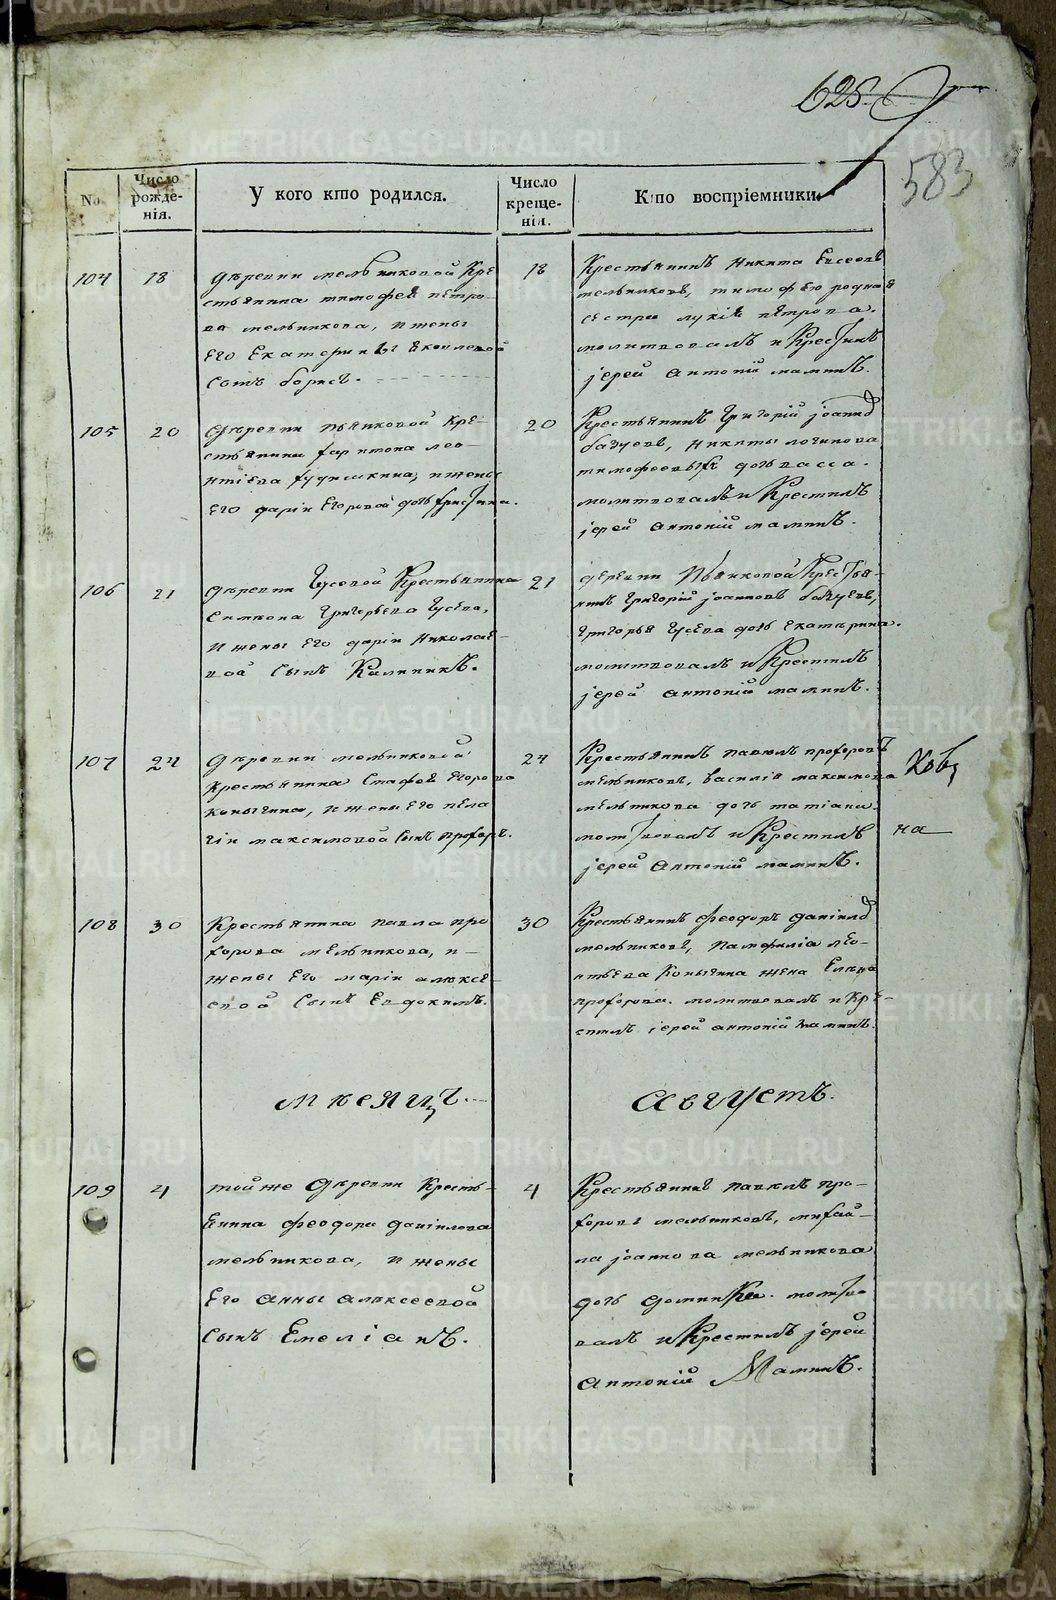 625.
583
№
Число рожде-нія.
У кого кто родился.
Число креще-нія.
Кто воспріемники.
104
18
деревни мельниковой Кре
стьянина тимофея петро-
ва мельникова, и жены
его Екатерины яковлевой
сынъ борисъ.
18
Крестьянинъ никита Евсеевъ
мельниковъ, тимофею родная
сестра лукія петрова.
молитвовалъ и Крестилъ
іерей антоній маминъ.
105
20
деревни пьянковой кре-
стьянина харитона лео-
нтіева худышкина, и жены
его дарьи Егоровой дочь христина.
20
Крестьянинъ григорій іоаннов
бачуевъ, никиты логинова
тимофеевыхъ дочь васса.
молитвовалъ и Крестилъ
іерей антоній маминъ.
106
21
деревни гусевой Крестьянина
симиона григорьева гусева,
и жены его даріи николае-
вой сынъ Калинникъ.
21
деревни пьянковой Крестья-
нинъ григорій іоанновъ бачуевъ,
григорья гусева дочь екатерина.
молитвовалъ и Крестилъ
іерей антоній маминъ.
107
24
деревни мельниковой
крестьянина Стафея егорова
конычина, и жены его пела
гіи максимовой сынъ прохоръ.
24
Крестьянинъ павелъ прохоровъ
мельниковъ, василія максимова
мельникова дочь татіана.
молитвовалъ и Крестилъ
іерей антоній маминъ.
на
108
30
Крестьянина павла про
хорова мельникова, и
жены его маріи алексе-
евой сынъ Евдокимъ.
30
Крестьянинъ феодоръ даніилов
мельниковъ, памфилія лео-
нтьева Конычина жена Елена
прохорова. молитвовалъ и Кре-
стилъ іерей антоній маминъ.
мѣсяцъ.
августъ.
109
4
той же деревни Кресть-
янина феодора даніилова
мельникова, и жены
его анны алексеевой
сынъ Емеліанъ.
4
Крестьянинъ павелъ про-
хоровъ мельниковъ, михаи-
ла іоаннова мельникова
дочь домника. молитво
валъ и Крестилъ іерей
антоній Маминъ.
METRIKI.GASO-URAL.RU